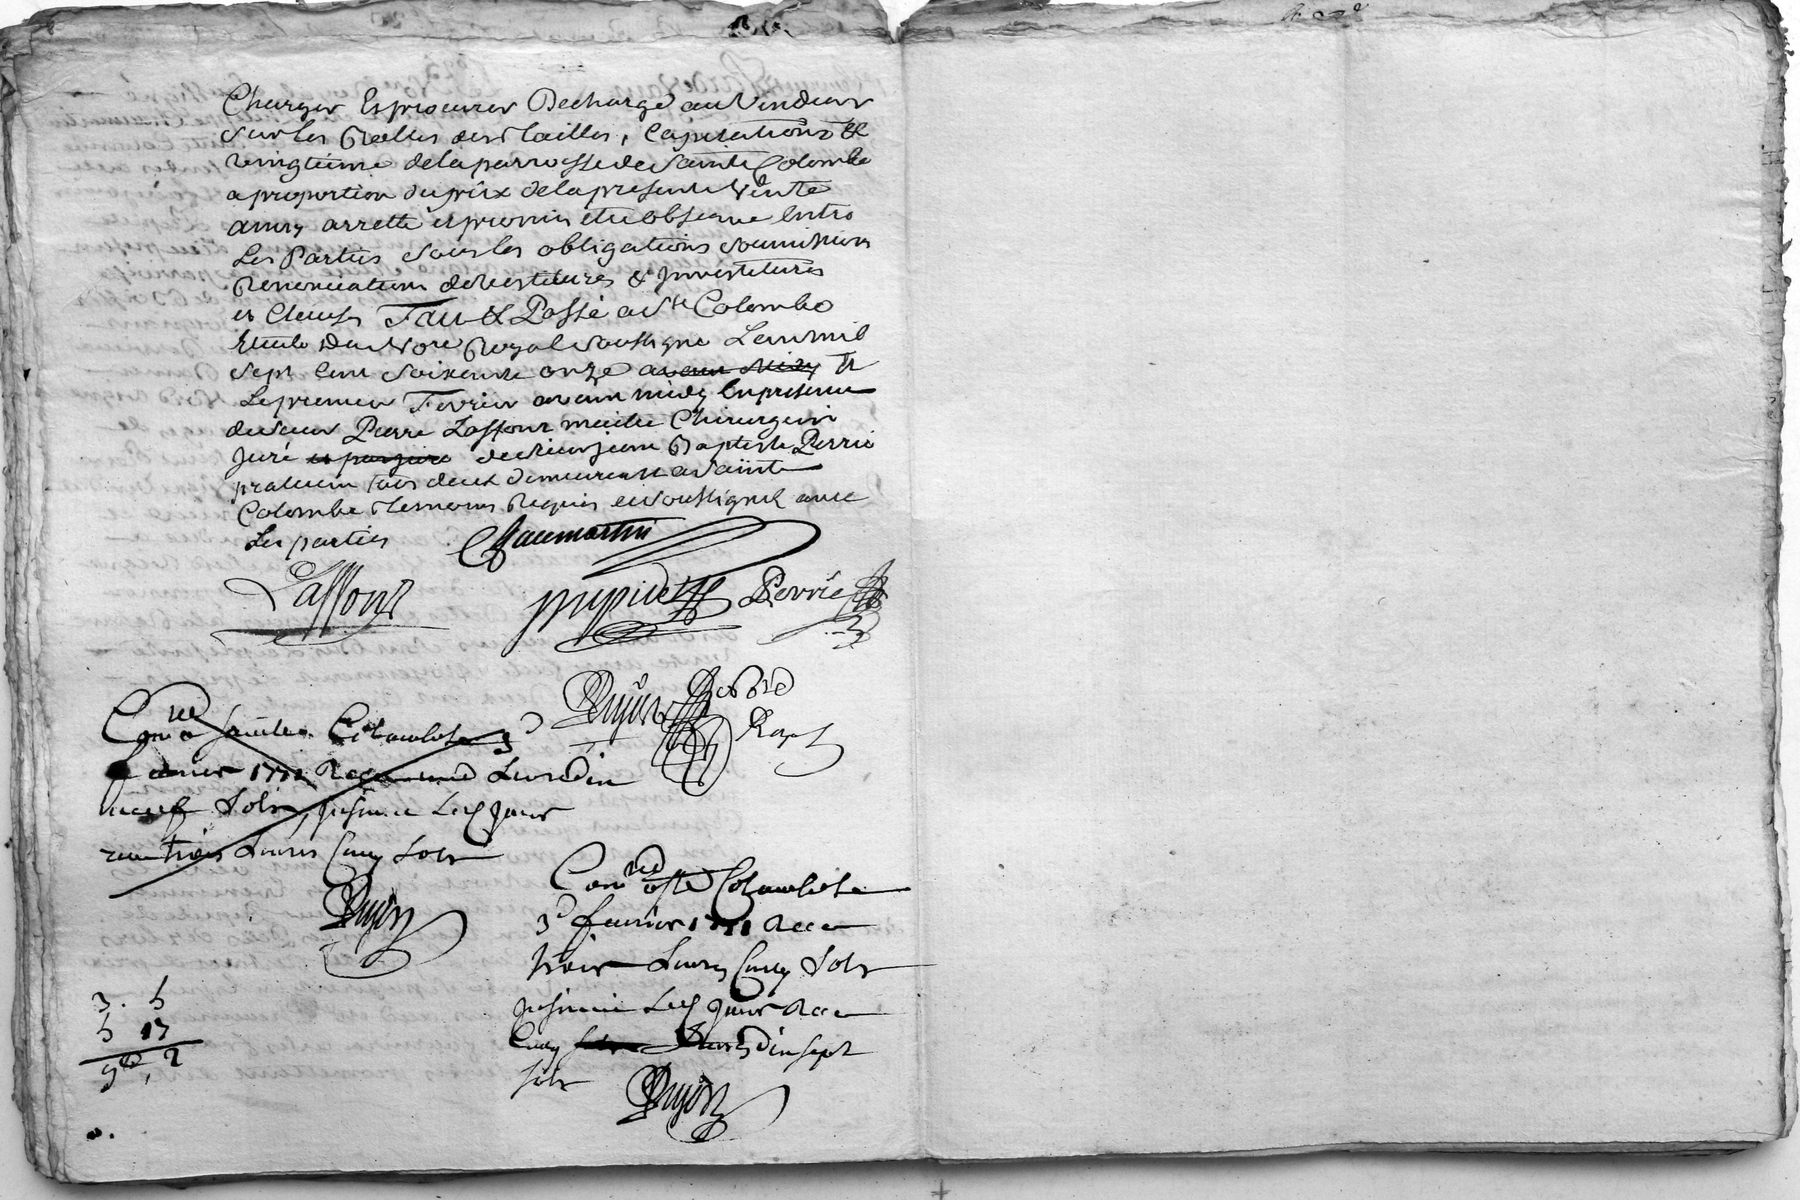 Charger Et procurer Decharge au Vendeur
sur les Rolles des tailles, Capitations &
vingtieme de la parroisse de Sainte Colombe
a proportion du prix de la presente Vente
ainsy arretté et promis etre observe Entre
Les Parties sous les obligations soumissions
Renonciations devestitures & Jnvestitures
et Clauses Fait & Passé a Ste Colombe
Etude du No.re Royal soussigné L'an mil
sept cent soixante onze avant Midy &
Le premier Fevrier avant midy En presence
du sieur Pierre Laffont maitre Chirurgien
Juré et par Jure de sieur Jean Baptiste Perrie
praticien tous deux demeurant a Sainte
Colombe temoins Requis et soussignés avec
Les parties Chaumartin
Laffont Perrie
No.re
Royal
Con.lé a Sainte Colombe 3d
fevrier 1771 Recu Livres dix
neuf sols, Jnsinué Led Jour
recu trois Livres Cinq sols
Con.lé a Ste Colombe Le
3d fevrier 1771 Recu
trois Livres Cinq sols
Jnsinué Led Jour Recu
Cinq sols Livres dix sept
sols
3. 5
5 17
9tt, 2